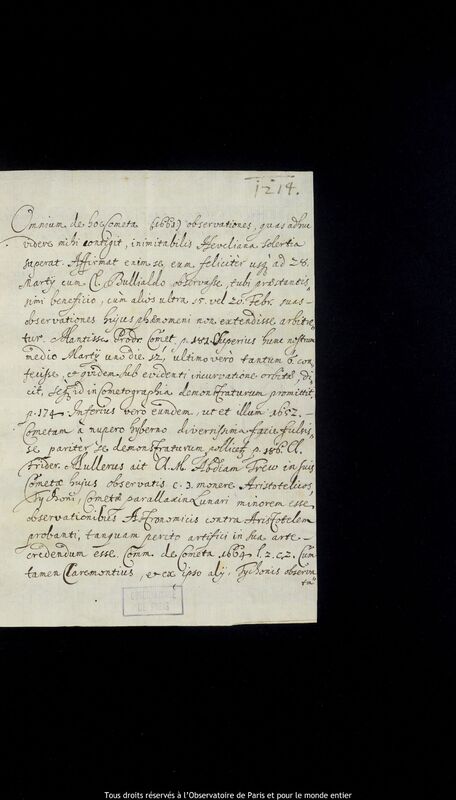 1214.
Omnium de hoc Cometa (1661) observationes, quas adhuc
videre mihi contigit, inimitabilis Heveliana solertia
superat. Affirmat enim se eum feliciter usq; ad 28.
Martij cum Cl. Bullialdo observasse, tubi præstantis-
simi beneficio, cum alios ultra 15. vel 20. Febr. suas
observationes hujus phænomeni non extendisse arbitre-
tur. Mantissa Prodr. Comet. p. 181. Superius hunc nostrum
medio Martij uno die 12', ultimo vero tantum 6. con-
fecisse, et quidem sub evidenti incurvatione orbitæ, di-
cit, seq; id in Cometographia demonstraturum promittit
p. 174. Inferius vero eundem, ut et illum 1652.
Cometam a nupero hyberno diversissima facie fulsis-
se pariter se demonstraturum pollicet. p. 186. Cl.
Frider. Mullerus ait Cl. M. Abdiam Trew in suis
Cometæ hujus observatis c. 3. monere Aristotelicos,
Tychoni, Cometæ parallaxin Lunari minorem esse
observationibus Astronomicis contra Aristotelem
probanti, tanquam perito artifici in sua arte
credendum esse. Comm. de Cometa 1664 l. 2. c. 2. Cum
tamen Claremontius, et ex ipso alij, Tychonis observa
tu
OBSERVATOIRE
DE PARIS
Tous droits réservés à l'Observatoire de Paris et pour le monde entier